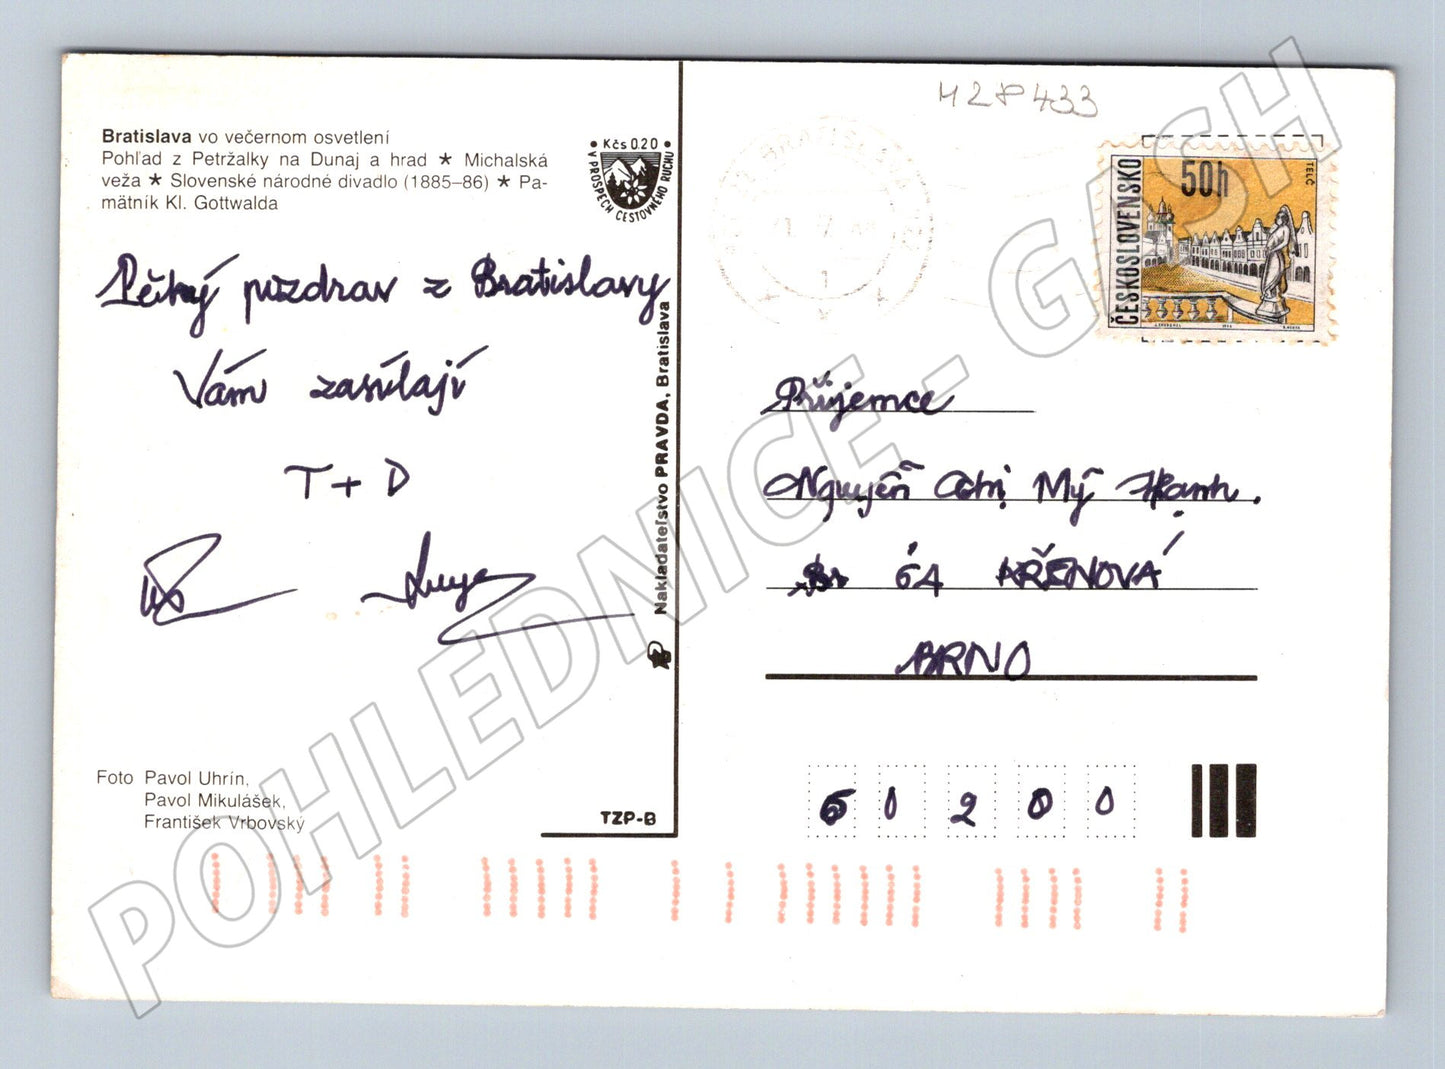 Bratislava vo večernom osvetlení
Pohľad z Petržalky na Dunaj a hrad ★ Michalská
veža ★ Slovenské národné divadlo (1885–86) ★ Pa-
mätník Kl. Gottwalda
Kčs 0.20
V PROSPECH CESTOVNÉHO RUCHU
Pěkný pozdrav z Bratislavy
Vám zasílají
T + D
Foto Pavol Uhrín,
Pavol Mikulášek,
František Vrbovský
TZP-B
Nakladateľstvo PRAVDA, Bratislava
H28433
BRATISLAVA
1
ČESKOSLOVENSKO
50h
TELČ
Příjemce
Nguyễn Thị Mỹ Hạnh.
61 KŘENOVÁ
BRNO
60200
POHLEDNICE - GASH